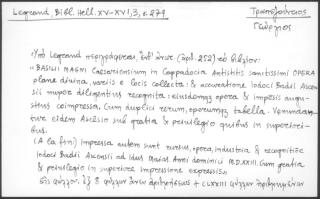 Legrand, Bibl. Hell. XV-XVI, 3, σ. 279.
Τραπεζούντιος
Γεώργιος
Ὑπὸ Legrand περιγράφεται, ὑπ' ἀριθ. (252) τὸ βιβλίον:
"BASILII MAGNI Caesariensium in Cappadocia Antistitis sanctissimi OPERA
plane divina, variis e locis collecta: & accuratione Iodoci Badii Ascen-
sii nuper diligentius recognita: eiusdemq; opera & impesis augu-
stius coimpressa. Cum duplici rerum, operumq; tabella. Venundan-
tur eidem Ascēsio sub gratia & privilegio quibus in superiori-
bus.
(A la fin) Impressa autem sunt rursus, opera, industria & recognitiōe
Iodoci Badii Ascensii ad idus Maias Anni dominici M.D.XXIII. Cum gratia
& privilegio in superiore impressione expressis"
εἰς φύλλον. 8 φύλλων ἄνευ ἀριθμήσεως + CLXXIII φύλλων ἠριθμημένων